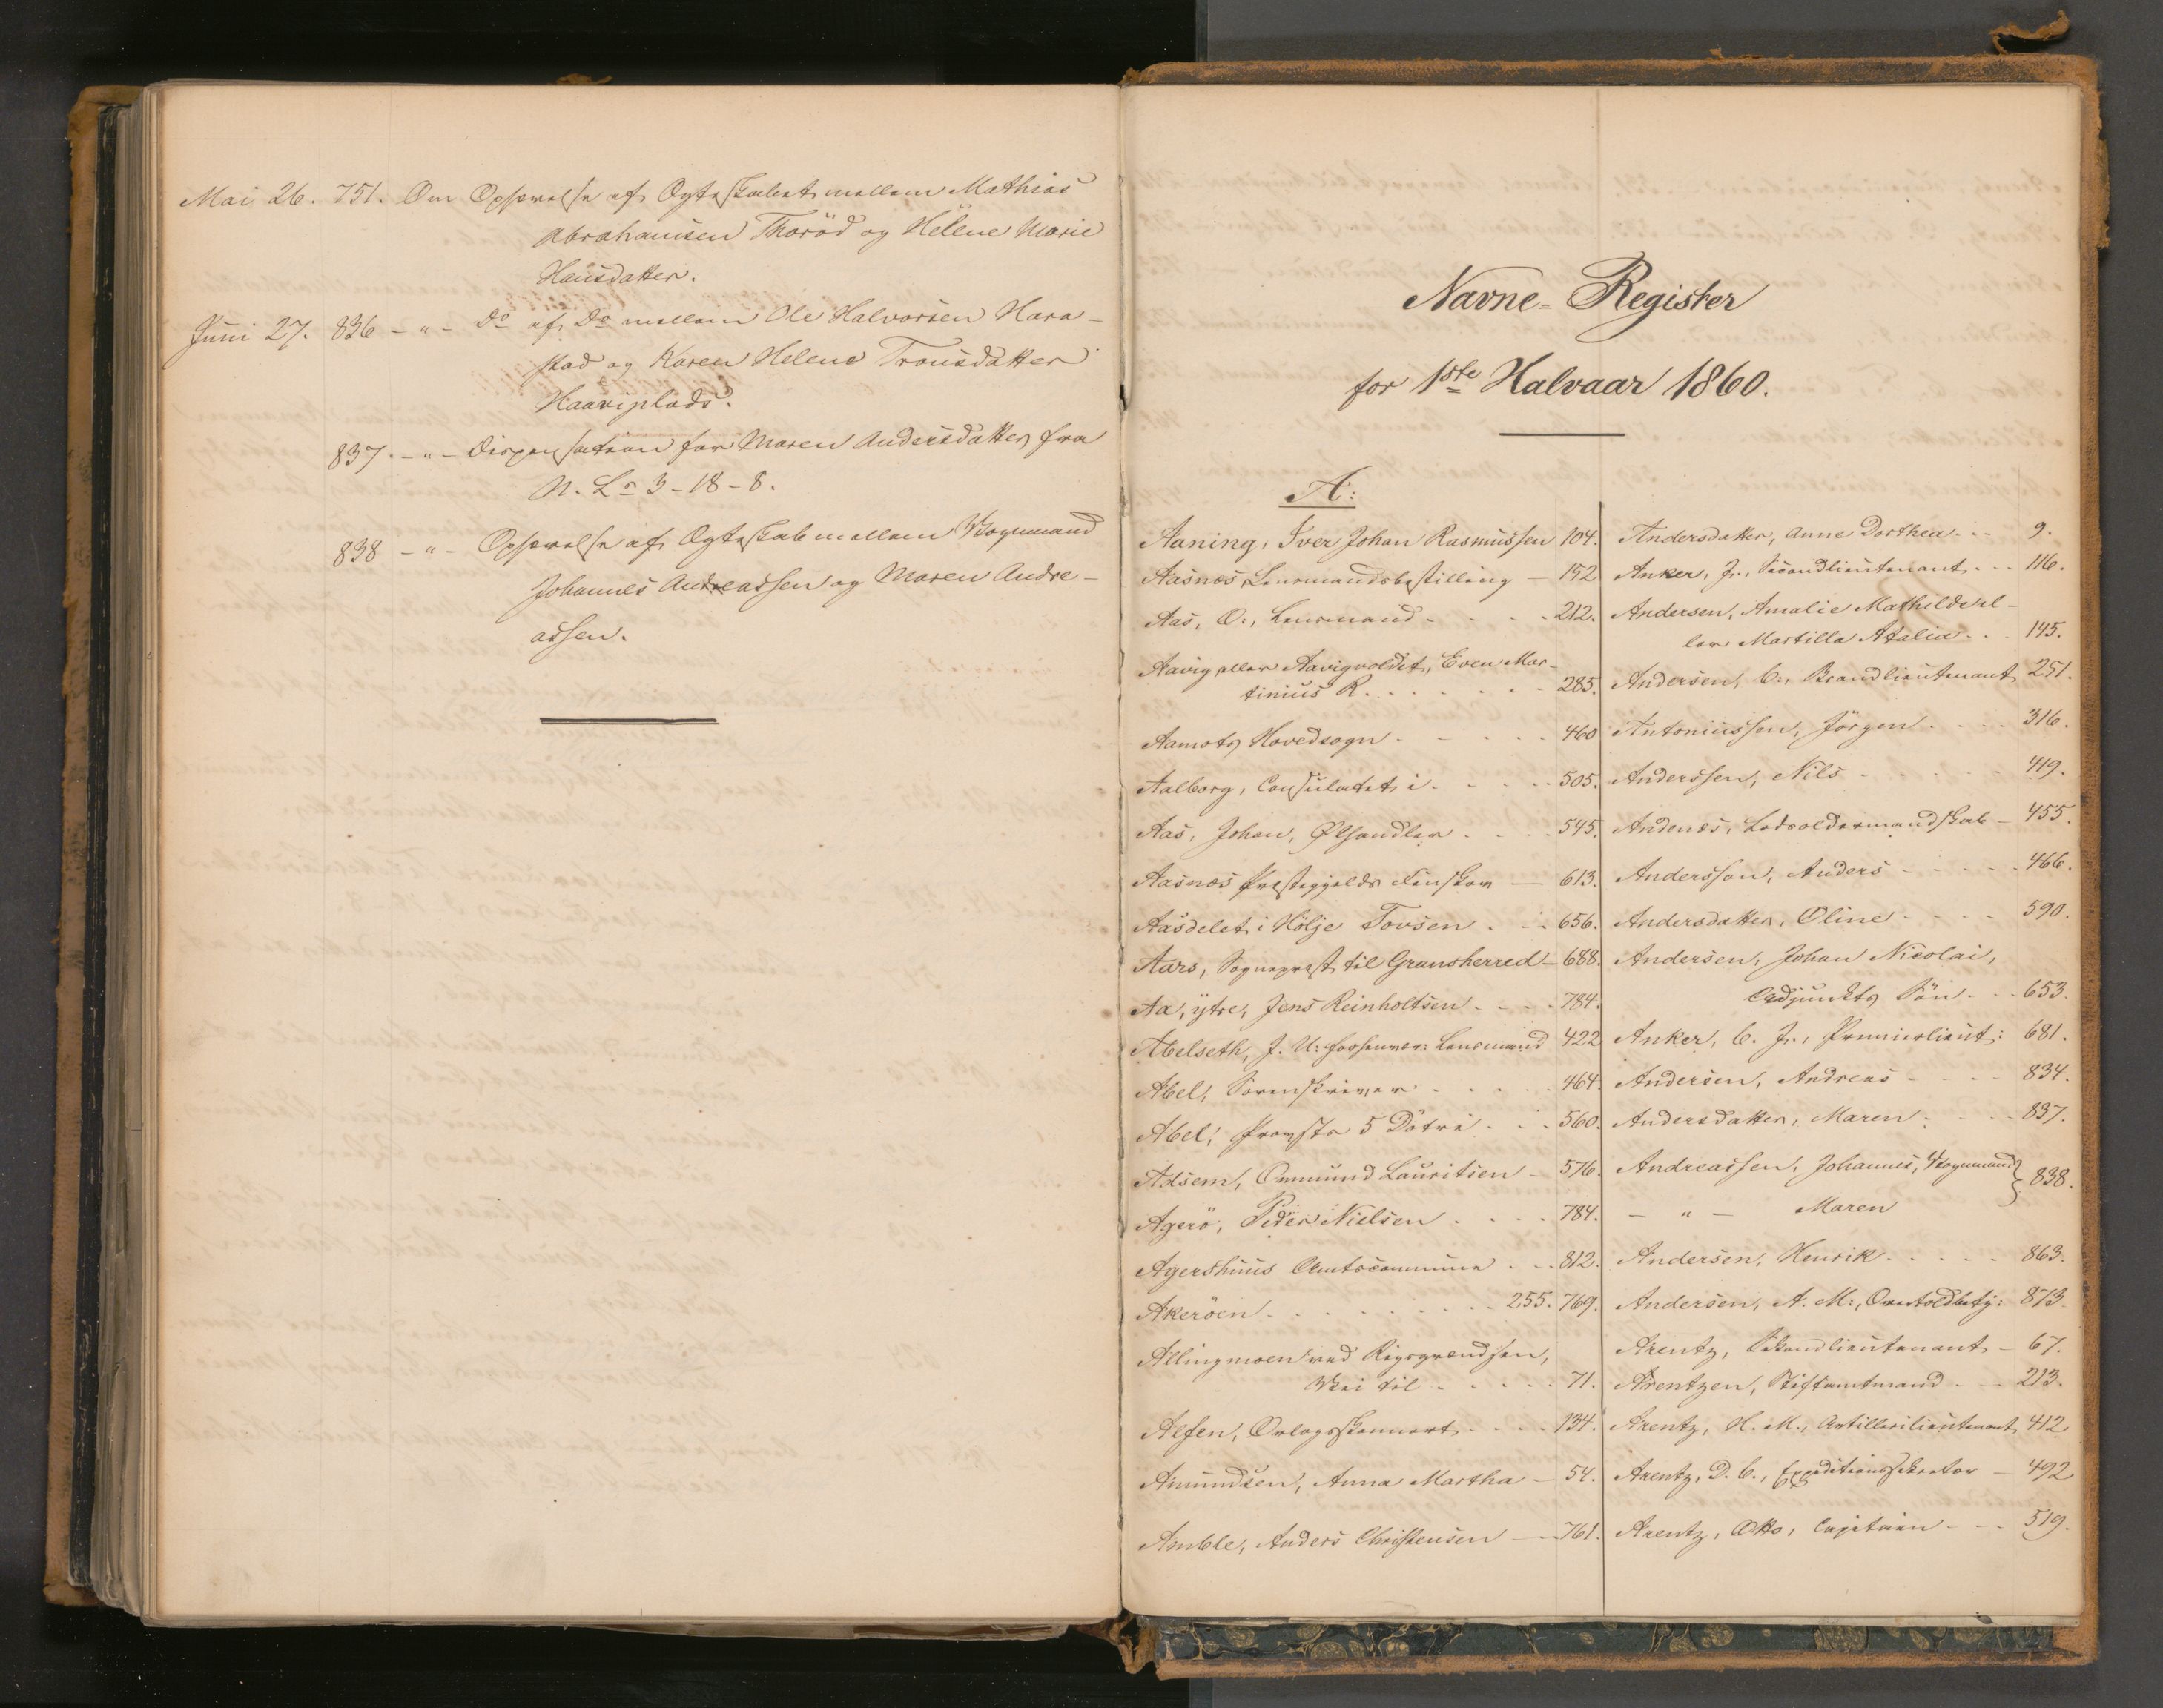 Mai 26. 751. Om Ophævelse af Ægteskabet mellem Mathias
Abrahamsen Thoröd og Helene Marie
Hansdatter.
Juni 27. 836 - " - Do af Do mellem Ole Halvorsen Hara-
stad og Karen Helene Tronsdatter
Haaviplads.
837. - " - Dispensation for Maren Andersdatter fra
N. L. 3-18-8.
838 - " - Ophævelse af Ægteskab mellem Vognmand
Johannes Andreassen og Maren Andre-
assen.
Navne-Register
for 1ste Halvaar 1860.
A:
Aaning, Iver Johan Rasmussen 104.
Aasnæs Lensmandsbestilling — 152
Aas, O., Lensmand - - - - 212.
Aavig eller Aavigvoldet, Even Mar-
tinius R. - - - - - 285.
Aamots Hovedsogn - - - - 460
Aalborg, Consulatet i - - - 505.
Aas, Johan, Ølhandler - - - 545.
Aasnæs Præstegjelds Finskov — 613.
Aasdelet i Hölje Tovsen - - - 656.
Aars, Sognepræst til Gransherred - 688.
Aa, ytre, Jens Reinholtsen - - - 784.
Abelseth, J. U: forhenvær: Lensmand 422
Abel, Sorenskriver - - - - 464.
Abel, Provsts 5 Døtre - - - 560.
Adsem, Ommund Lauritsen - 576.
Agerö, Peder Nielsen - - - - 784.
Agershuus Amtscommune - - - 812.
Akeröen - - - - - 255. 769.
Allingmoen ved Rigsgrændsen,
Vei til - - - - - 71.
Alfen, Orlogsskonnert - - - 134.
Amundsen, Anna Martha - 54.
Amble, Anders Christensen - 761.
Andersdatter, Anne Dorthea - - 9.
Anker, Jr., Secondlieutenant - - 116.
Andersen, Amalie Mathilde el-
ler Martilla Atalia - - 145.
Andersen, C., Brandlieutenant 251.
Antoniussen, Jörgen - - - 316.
Anderssen, Nils - - - - 419.
Andenæs, Lodsoldermandskab - 455.
Anderssen, Anders - - - - 466.
Andersdatter, Oline - - - - 590.
Andersen, Johan Nicolai,
Adjunkts Sön - - 653.
Anker, C. Jr., Premierlieut: 681.
Andersen, Andreas - - - 834.
Andersdatter, Maren - - - 837.
Andreassen, Johannes, Vognmand } 838.
- " - Maren
Andersen, Henrik - - - - 863.
Andersen, A. M:, Overtoldbetj: 873.
Arentz, Sekondlieutenant - 67.
Arentzen, Stiftamtmand - - 213.
Arentz, H. M., Artillerilieutenant 412
Arentz, D. C., Expeditionssekretær - 492
Arentz, Otto, Capitain - - - 519.